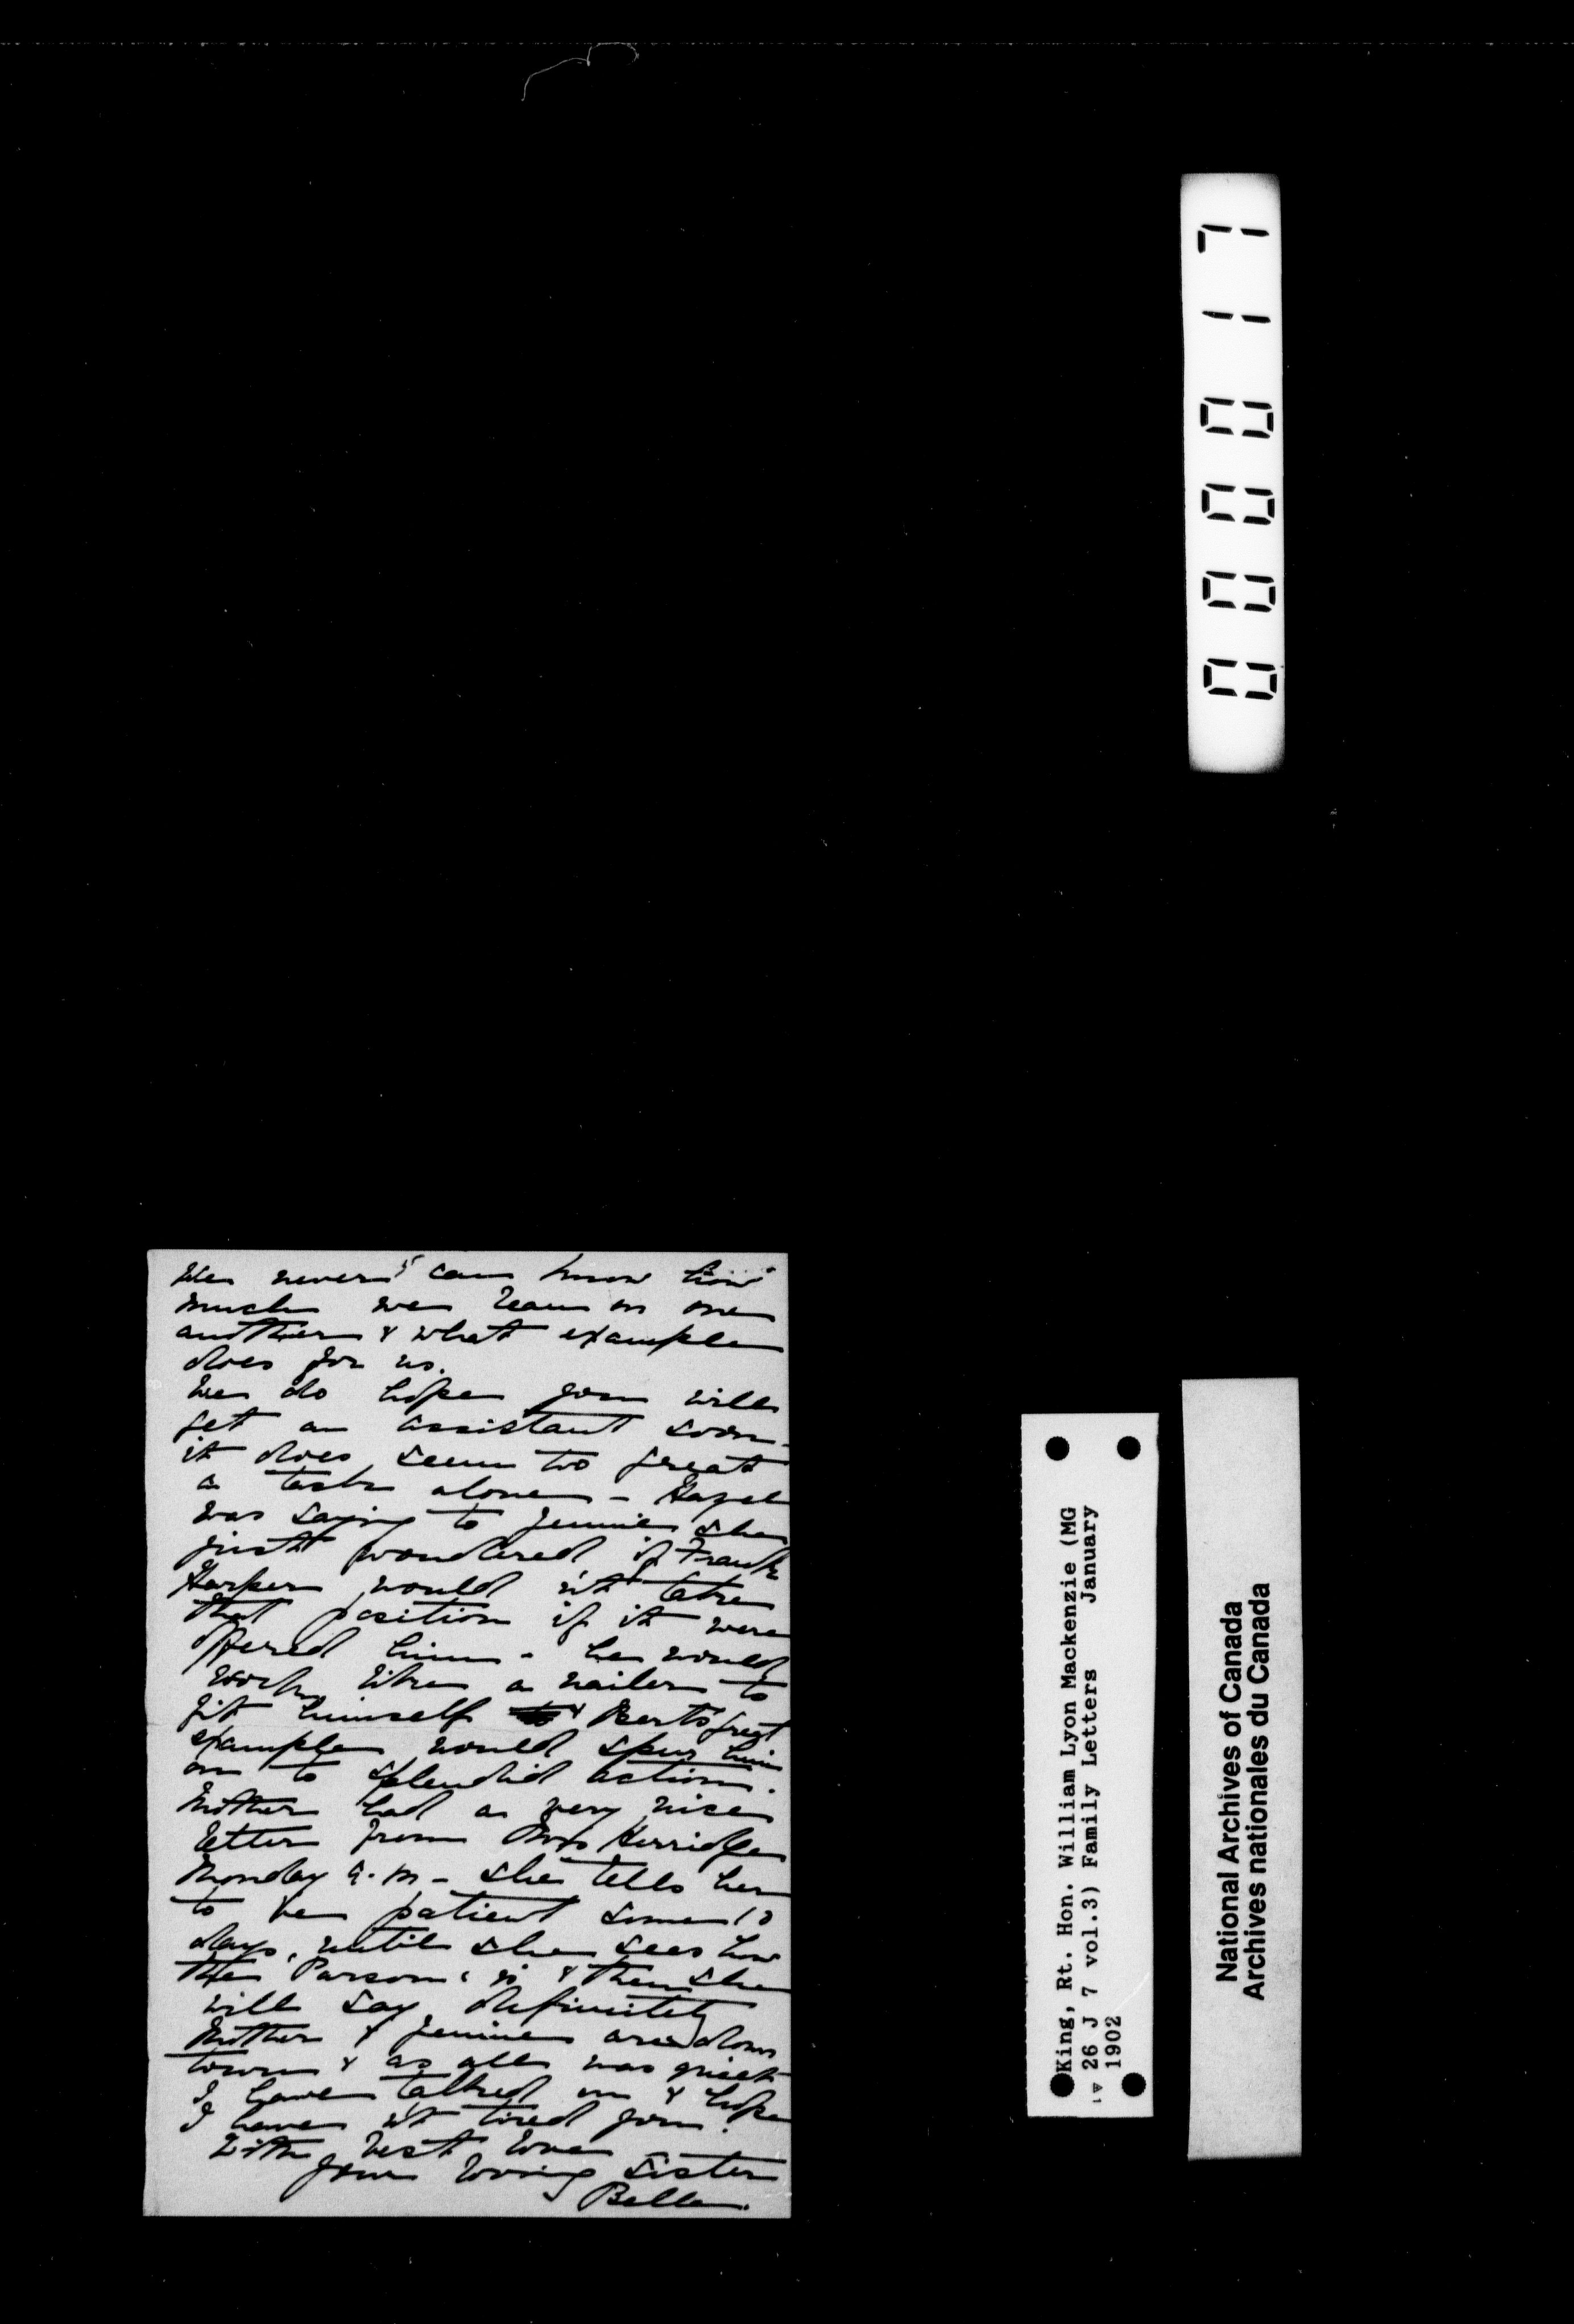 We never can know how
much we lean on one
another & what example
does for us.
We do hope you will
get an assistant soon -
it does seem too great
a task alone - Hazel
was saying to Jennie she
just wondered if Frank
Harper would n't take
that position if it were
offered him - he would
work like a nailer to
fit himself & Bert's great
example would spur him
on to splendid action.
Mother had a very nice
letter from Mrs Herridge
Monday a.m - she tells her
to be patient some 10
days, until she sees how
the Parson is & then she
will say definitely
Mother & Jennie are down
town & as all was quiet
I have talked on & hope
I have n't tired you.
With best love
Your loving sister
Bella.
000017
King, Rt. Hon. William Lyon Mackenzie (MG
26 J 7 vol.3) Family Letters January
1902
National Archives of Canada
Archives nationales du Canada